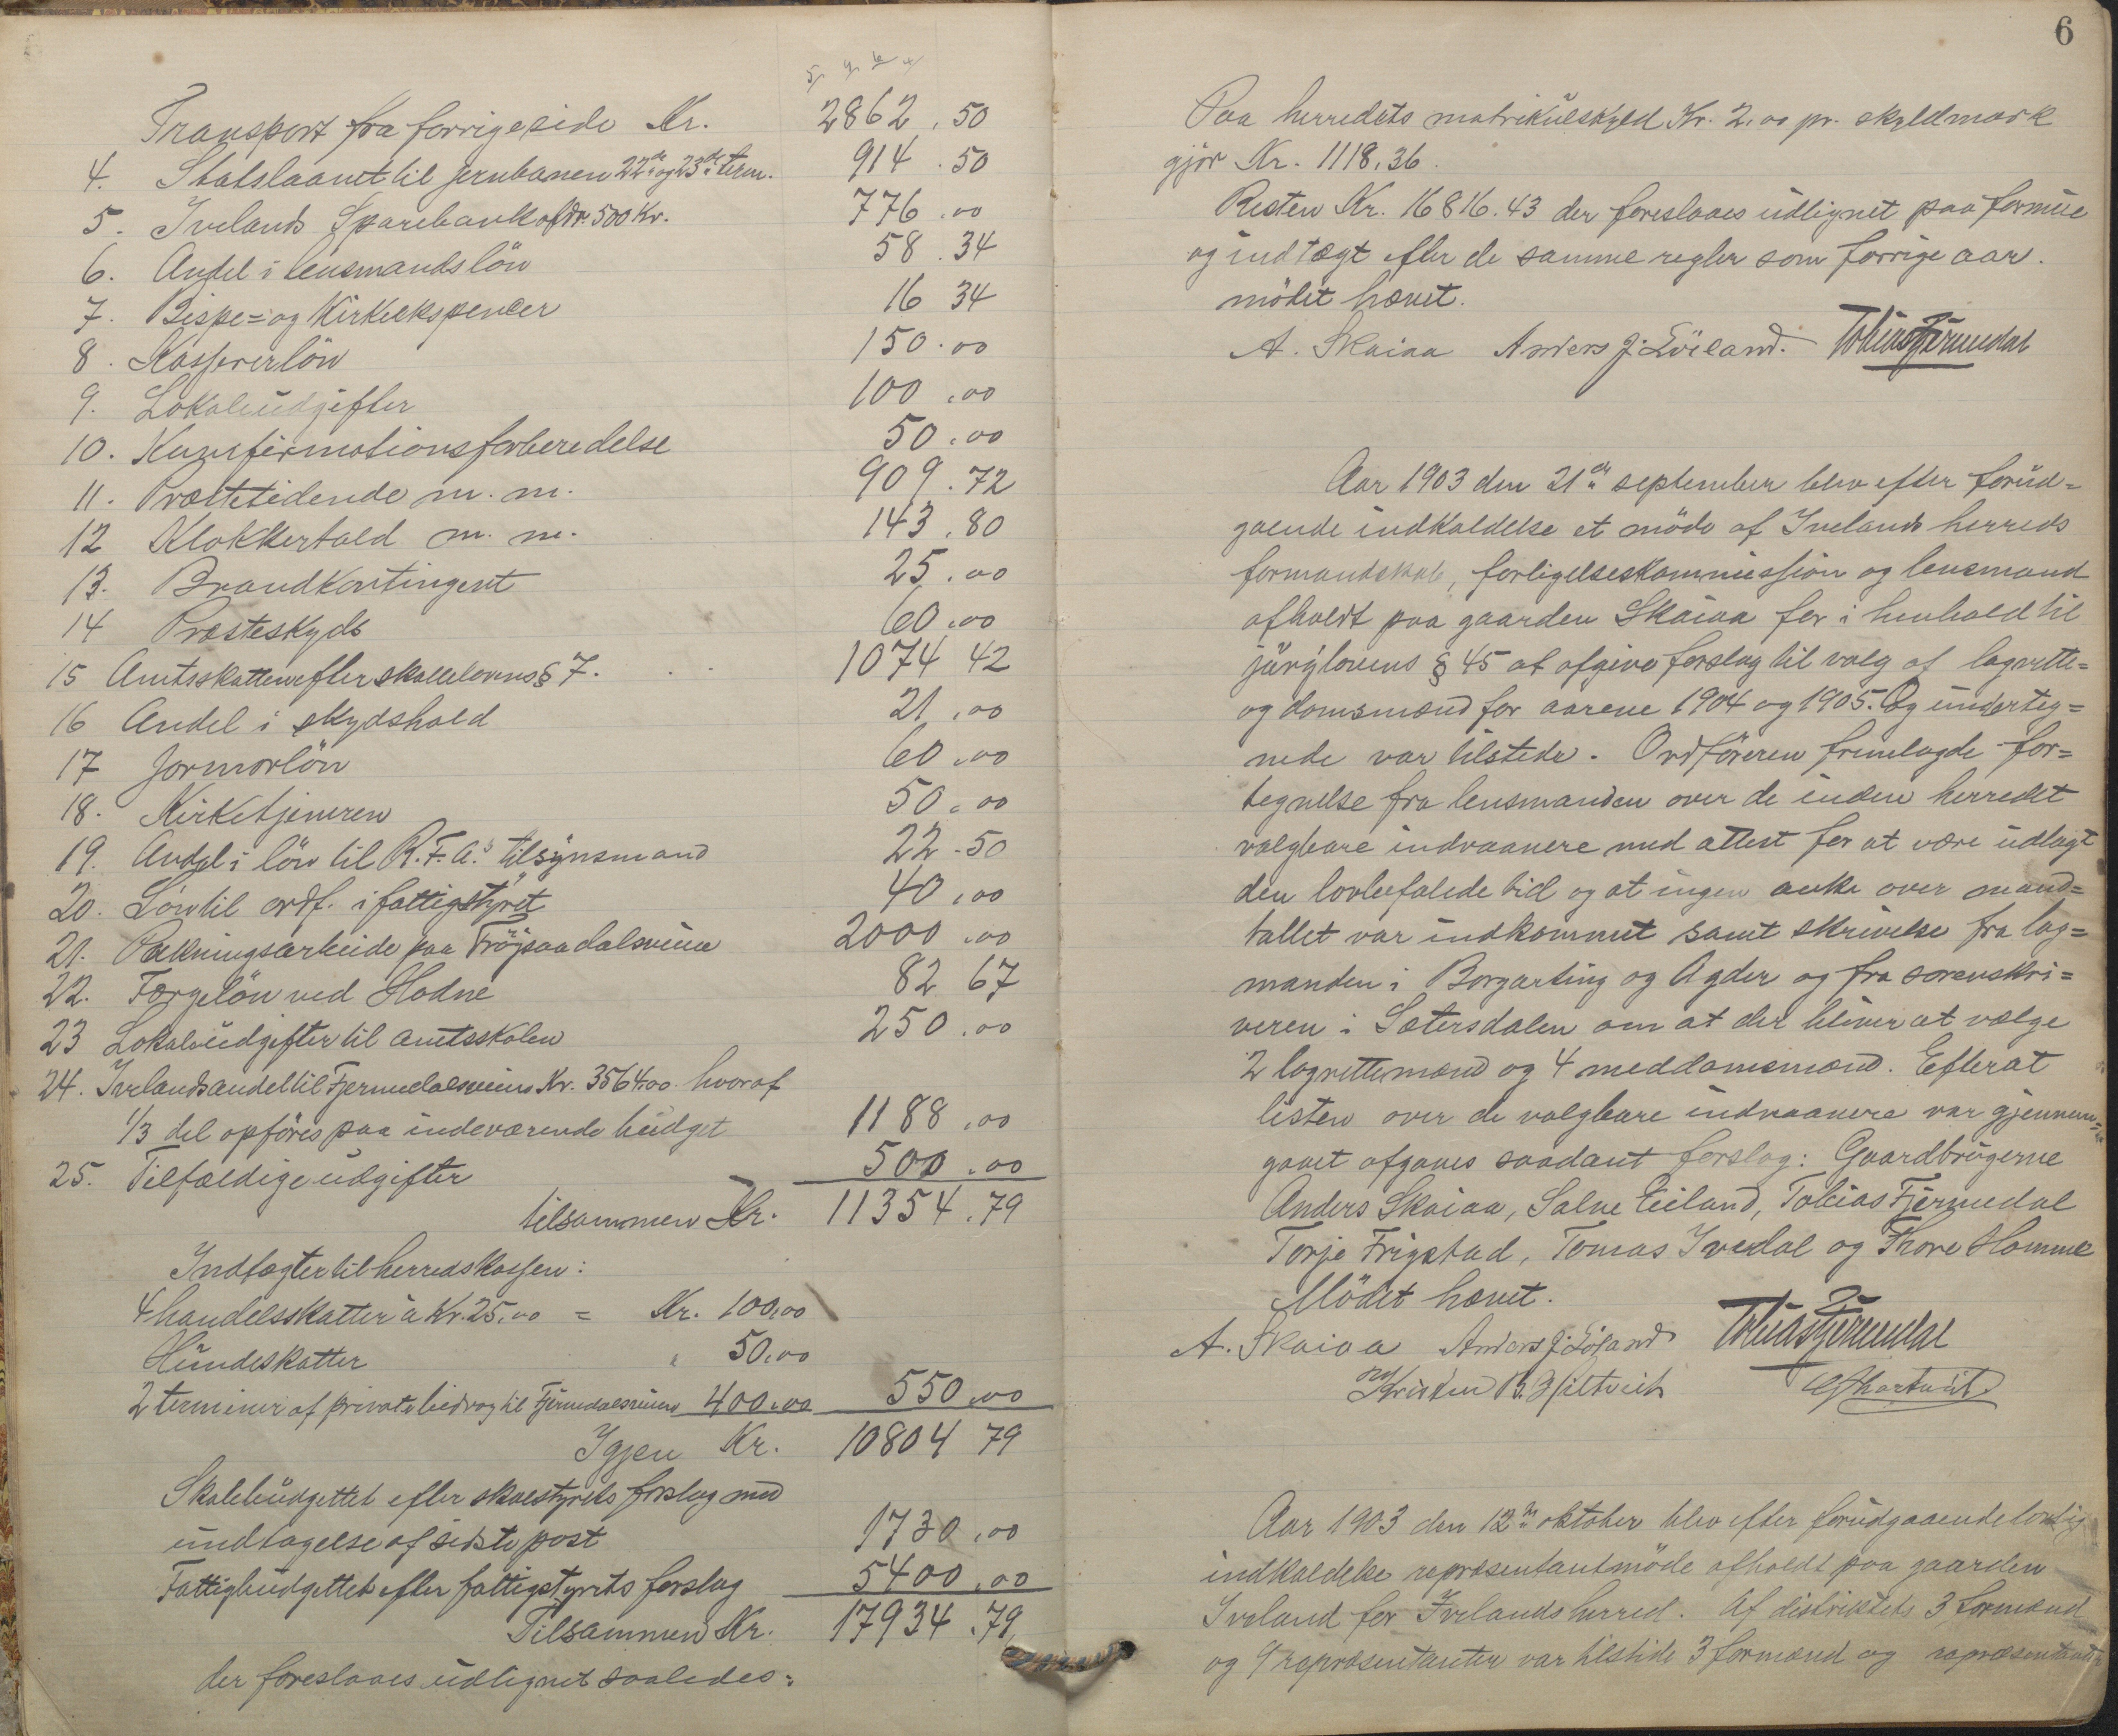 Transport fra forrige side Kr. 2862.50
4. Statslaanet til jernbanen 22de og 23de term. 914.50
5. Ivelands Sparebank afdr. 500 Kr. 776.00
6. Andel i lensmandslön 58.34
7. Bispe= og Kirkeekspencer 16 34
8. Kasserer lön 150.00
9. Lokaleudgifter 100.00
10. Kunfirmationsforberedelse 50.00
11. Præstetidende m. m. 909.72
12 Klokkertold m. m. 143.80
13. Brandkontingent 25.00
14 Præsteskyds 60.00
15 Amtsskatten efter skattelovens § 7. 1074 42
16 Andel i skydshold 21.00
17 Jormorlön 60.00
18. Kirketjeneren 50.00
19. Andel i lön til R.F.A.s tilsynsmand 22.50
20. Lön til ordf. i fattigstyret 40.00
21. Pakningsarbeide paa Tröjsaadalsveien 2000.00
22. Færgelön ved Hodne 82 67
23 Lokaleudgifter til amtsskolen 250.00
24. Ivelands andel til Fjermedalsveien Kr. 3564.00 hvoraf
1/3 del opföres paa indeværende budget 1188.00
25. Tilfældige udgifter 500.00
tilsammen Kr. 11354.79
Indtægter til herredskassen:
4 handelsskatter à Kr. 25.00 = Kr. 100.00
Hundeskatter " 50.00
2 terminer af private bidrag til Fjermedalsveien 400.00 550.00
Igjen Kr. 10804 79
Skolebudgettet efter skolestyrets forslag med
undtagelse af sidste post 1730.00
Fattigbudgettet efter fattigstyrets forslag 5400.00
Tilsammen Kr. 17934.79
der foreslaaes udlignet saaledes:
6
Paa herredets matrikulskyld Kr. 2.00 pr. skyldmark
gjör Kr. 1118.36.
Resten Kr. 16816.43 der foreslaaes udlignet paa formue
og indtægt efter de samme regler som forrige aar.
mödet hævet.
A. Skaiaa Anders J. Löiland. Tobias Fjermedal
Aar 1903 den 21de september blev efter forud=
gaende indkaldelse et möde af Ivelands herreds
formandskab, forligelseskommission og lensmand
afholdt paa gaarden Skaiaa for i henhold til
jurylovens § 45 at afgive forslag til valg af lagrette=
og domsmænd for aarene 1904 og 1905. Og underteg=
nede var tilstede. Ordföreren fremlagde for=
tegnelse fra lensmanden over de inden herredet
valgbare indvaanere med attest for at være udlagt
den lovbefalede tid og at ingen anke over mand=
tallet var indkommet samt skrivelse fra lag=
manden i Borgarting og Agder og fra sorenskri=
veren i Sætersdalen om at der bliver at vælge
2 lagrettemænd og 4 meddomsmænd. Efterat
listen over de valgbare indvaanere var gjennem=
gaaet afgaves saadant forslag: Gaardbrugerne
Anders Skaiaa, Salve Eiland, Tobias Fjermedal
Torje Frigstad, Tomas Ivedal og Thore Homme
Mödet hævet.
A. Skaiaa Anders J. Löiland Tobias Fjermedal
Kristen B.
Aar 1903 den 12te oktober blev efter forudgaaende lovlig
indkaldelse repræsentantmöde afholdt paa gaarden
Iveland for Ivelands herred. Af distriktets 3 formænd
og 9 repræsentanter var tilstede 3 formænd og repræsentant